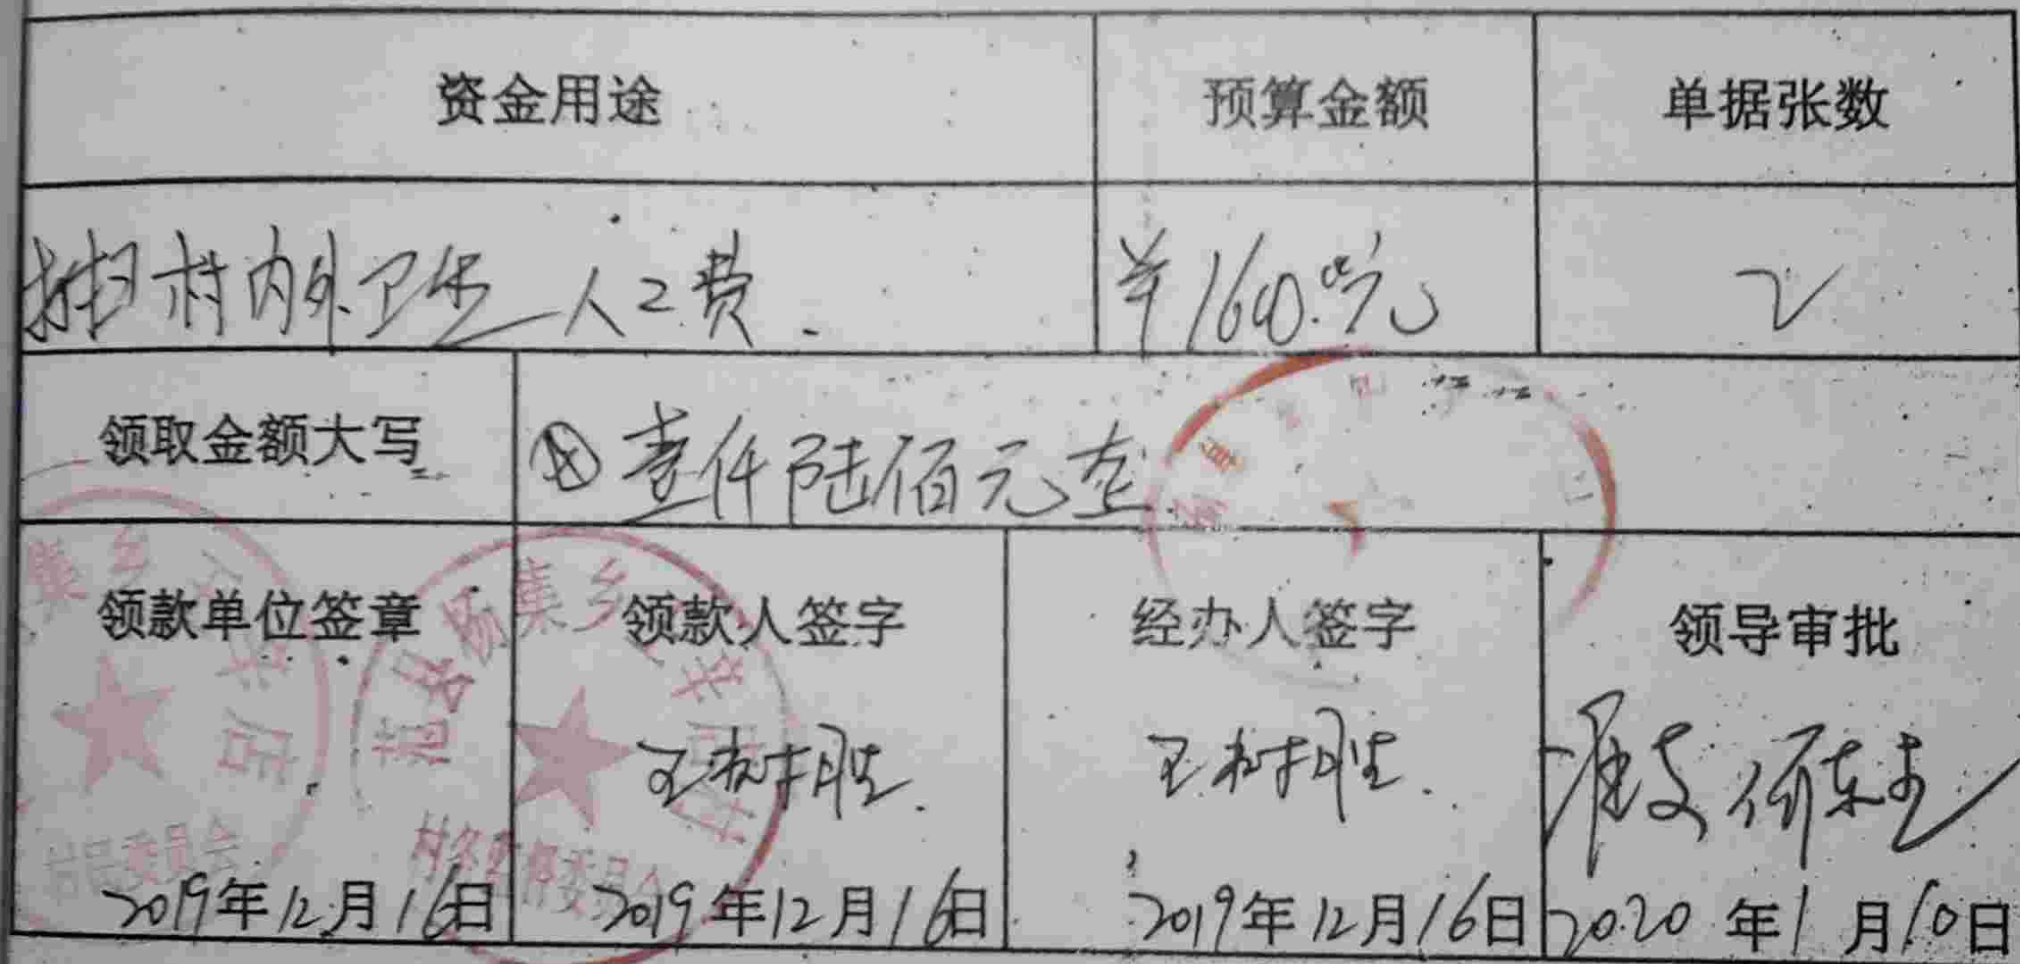 资金用途 预算金额 单据张数
扫村内外卫生人工费. ¥1600.00元 2
领取金额大写 壹仟陆佰元整
领款单位签章 领款人签字 经办人签字 领导审批
王树胜. 王树胜. 准支
集乡
集乡
村民委员会
2019年12月16日 2019年12月16日 2019年12月16日 2020年1月10日